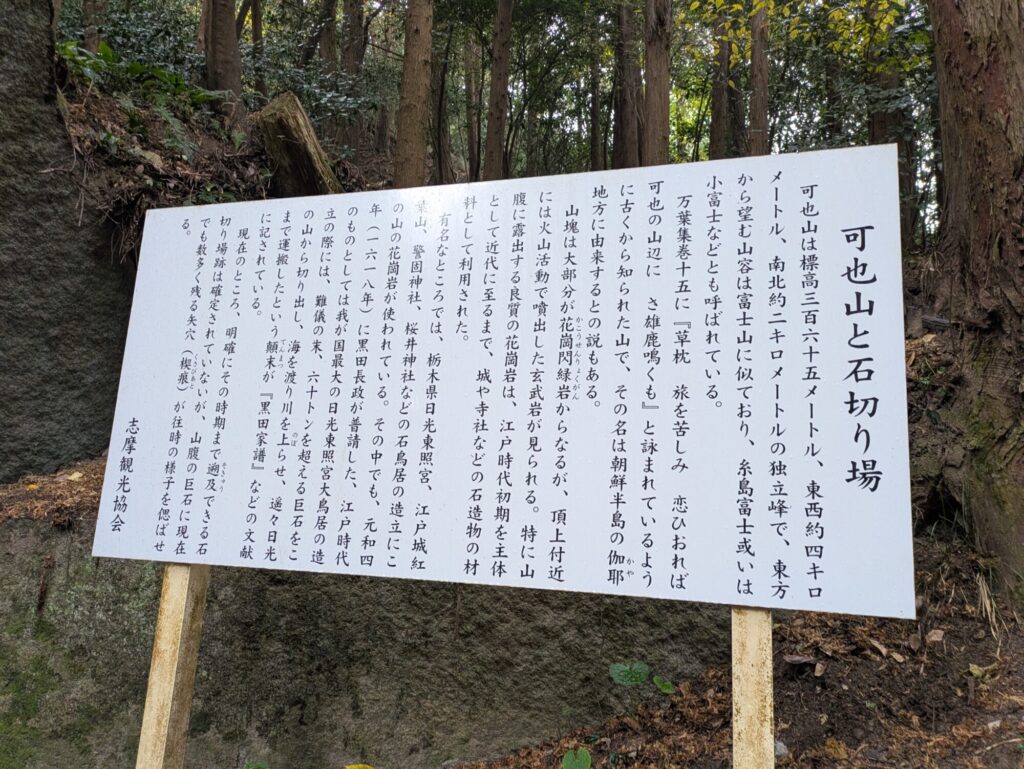 可也山と石切り場
可也山は標高三百六十五メートル、東西約四キロ
メートル、南北約二キロメートルの独立峰で、東方
から望む山容は富士山に似ており、糸島富士或いは
小富士などとも呼ばれている。
万葉集巻十五に『草枕 旅を苦しみ 恋ひおれば
可也の山辺に さ雄鹿鳴くも』と詠まれているよう
に古くから知られた山で、その名は朝鮮半島の伽耶
かや
地方に由来するとの説もある。
山塊は大部分が花崗閃緑岩からなるが、頂上付近
かこうせんりょくがん
には火山活動で噴出した玄武岩が見られる。特に山
腹に露出する良質の花崗岩は、江戸時代初期を主体
として近代に至るまで、城や寺社などの石造物の材
料として利用された。
有名なところでは、栃木県日光東照宮、江戸城紅
葉山、警固神社、桜井神社などの石鳥居の造立にこ
の山の花崗岩が使われている。その中でも、元和四
年（一六一八年）に黒田長政が普請した、江戸時代
のものとしては我が国最大の日光東照宮大鳥居の造
立の際には、難儀の末、六十トンを超える巨石をこ
の山から切り出し、海を渡り川を上らせ、遥々日光
のぼ
まで運搬したという顛末が『黒田家譜』などの文献
てんまつ
に記されている。
現在のところ、明確にその時期まで遡及できる石
そきゅう
切り場跡は確定されていないが、山腹の巨石に現在
でも数多く残る矢穴（楔痕）が往時の様子を偲ばせ
くさびあと
る。
志摩観光協会